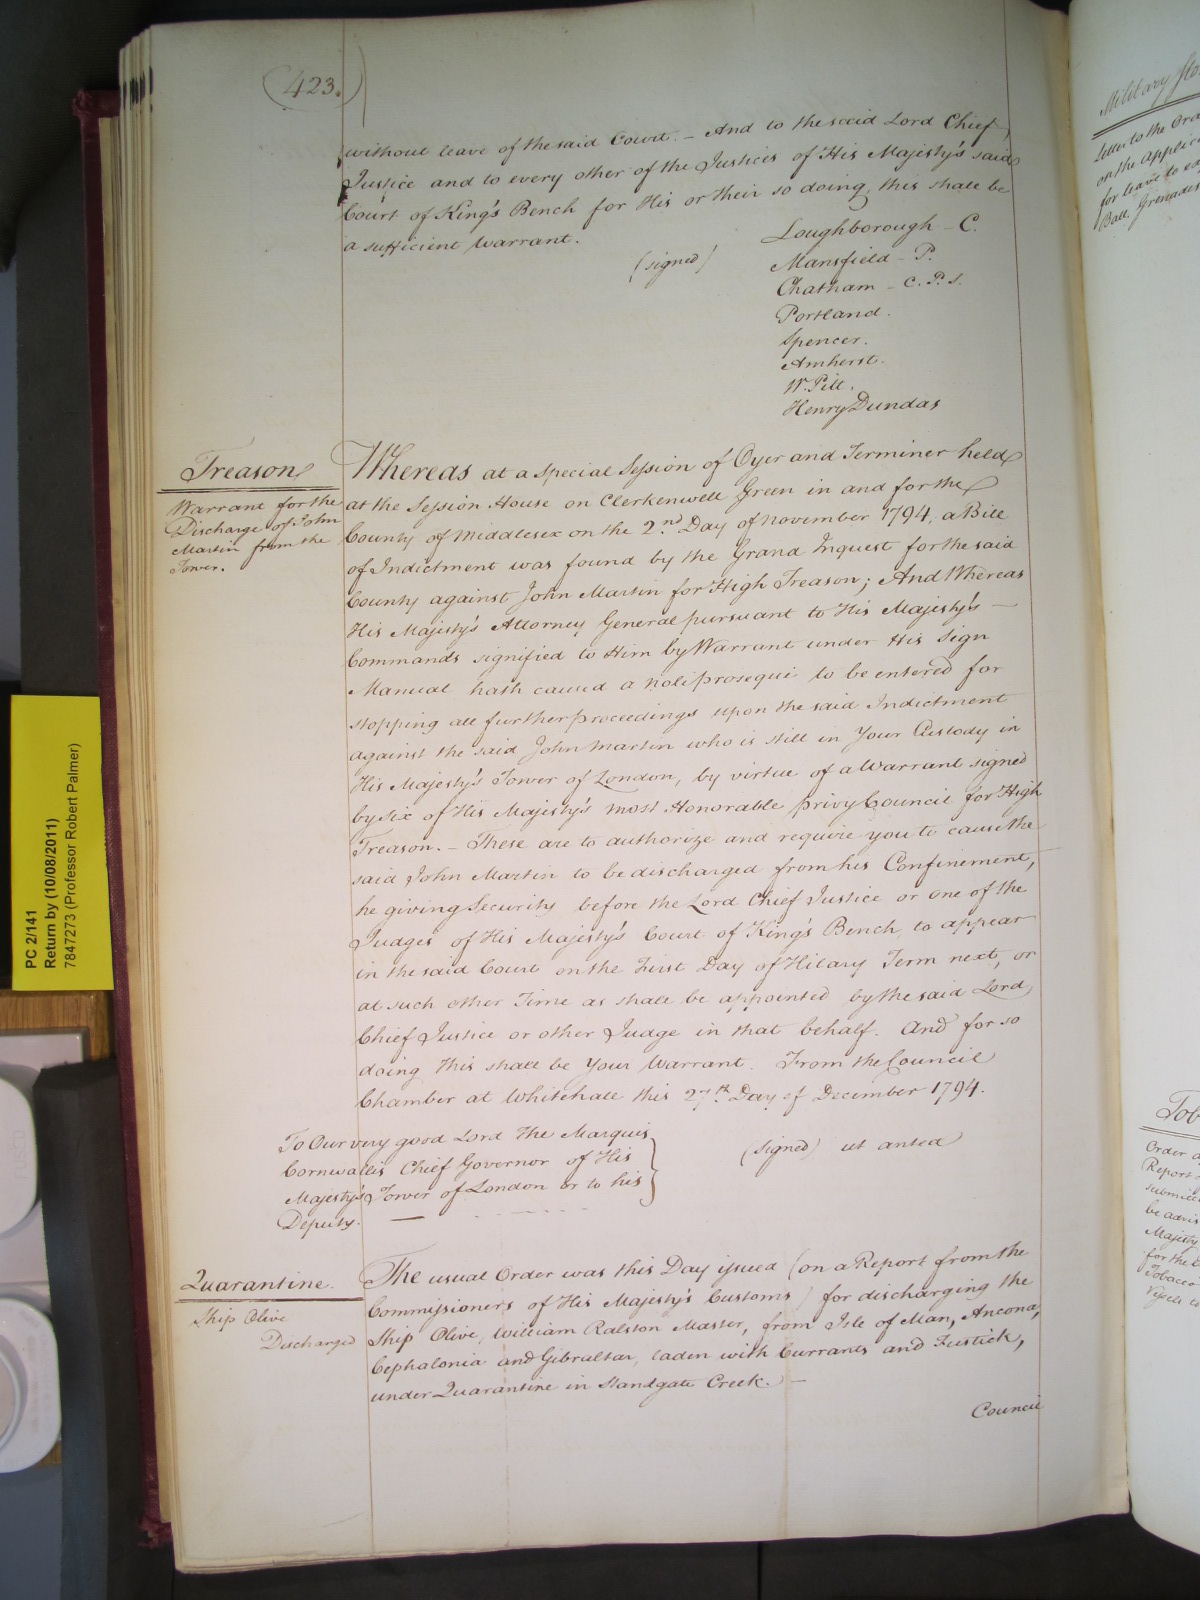 (423.)
without leave of the said Court. – And to the said Lord Chief
Justice and to every other of the Justices of His Majesty's said
Court of King's Bench for His or their so doing, this shall be
a sufficient Warrant.
(signed)
Loughborough – C.
Mansfield – P.
Chatham – C. P. S.
Portland.
Spencer.
Amherst.
W. Pitt.
Henry Dundas
Treason
Warrant for the
Discharge of John
Martin from the
Tower.
Whereas at a Special Session of Oyer and Terminer held
at the Session House on Clerkenwell Green in and for the
County of Middlesex on the 2nd. Day of November 1794, a Bill
of Indictment was found by the Grand Inquest for the said
County against John Martin for High Treason; And Whereas
His Majesty's Attorney General pursuant to His Majesty's –
Commands signified to Him by Warrant under His Sign
Manual hath caused a noli prosequi to be entered for
stopping all further proceedings upon the said Indictment
against the said John Martin who is still in Your Custody in
His Majesty's Tower of London, by virtue of a Warrant signed
by six of His Majesty's most Honorable privy Council for High
Treason. – These are to authorize and require you to cause the
said John Martin to be discharged from his Confinement,
he giving Security before the Lord Chief Justice or one of the
Judges of His Majesty's Court of King's Bench, to appear
in the said Court on the First Day of Hilary Term next, or
at such other Time as shall be appointed by the said Lord
Chief Justice or other Judge in that behalf. And for so
doing this shall be Your Warrant. From the Council
Chamber at Whitehall this 27th. Day of December 1794.
To Our very good Lord The Marquis
Cornwallis Chief Governor of His
Majesty's Tower of London or to his
Deputy. –
(signed) ut antea
Quarantine.
Ship Olive
Discharged
The usual Order was this Day issued (on a Report from the
Commissioners of His Majesty's Customs) for discharging the
Ship Olive, William Ralston Master, from Isle of Man, Ancona,
Cephalonia and Gibraltar, laden with Currants and Fustick,
under Quarantine in Standgate Creek. –
Council
PC 2/141
Return by (10/08/2011)
7847273 (Professor Robert Palmer)
Military Sto
Letter to the Ord
on the Applic
for leave to ex
Ball, Grenades
Tob
Order
Report
be advis
Majesty
for the
Tobacco
Vessels